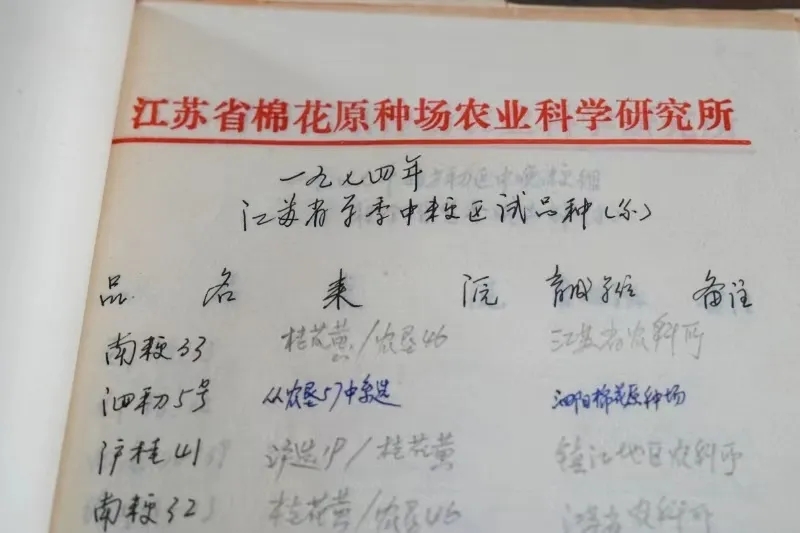 江苏省棉花原种场农业科学研究所
一九七四年
江苏省单季中粳区试品种(系)
品 名 来 源 育成单位 备注
南粳33 桂花黄/农垦46 江苏省农科所
泗初5号 从农垦57中系选 泗阳棉花原种场
沪桂41 沪选19/桂花黄 镇江地区农科所
南粳32 桂花黄/农垦46 江苏省农科所